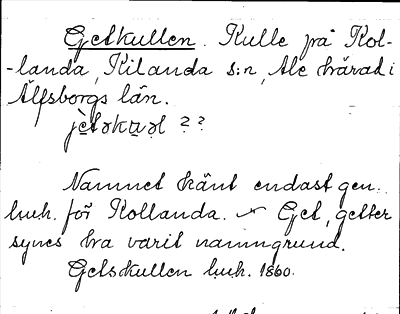 Getkullen. Kulle på Kol-
-landa, Kilanda s:n, Ale härad i
Älfsborgs län.
jètəkaəl ??
Namnet känt endast gen.
huh. för Kollanda. Get, getter
synes ha varit namngrund.
Getskullen huh. 1860.